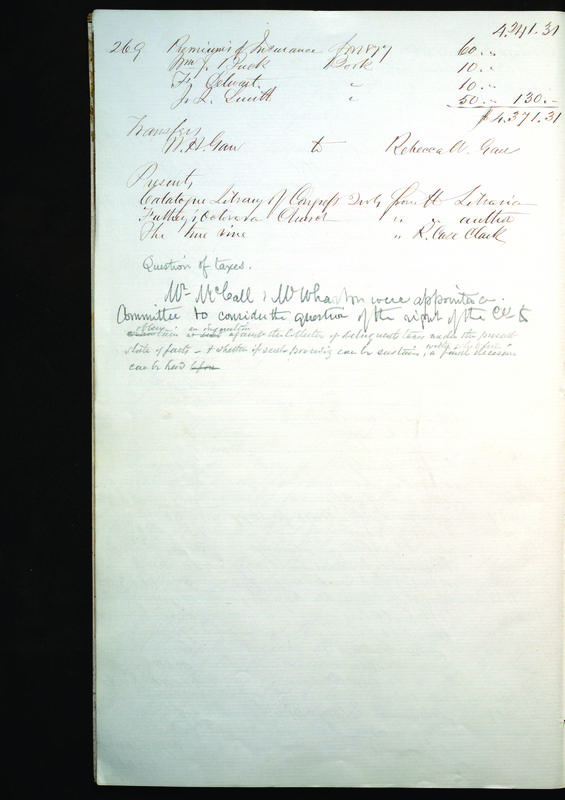 4,241.31
269 Premiums of Insurance for 1877 60 ..
Wm J. Buck Book 10 ..
Fr. " 10 ..
J. L. Smith " 50 .. 130.-
$4,371.31
Transfers
W. H. Gaw to Rebecca W. Gaw
Presents
Catalogue Library of Congress 2 vols from the Librarian
Church " " author
The true vine " R. Case Clark
Question of taxes.
Mr McCall & Mr Wharton were appointed a
Committee to consider the question of the right of the Co to
obtain an injunction
against the Collector of delinquent taxes under the present
state of facts - & whether if such can be sustained, a final decision
can be had